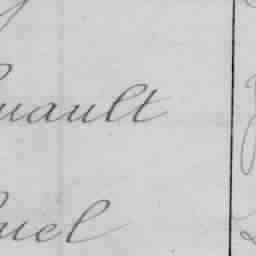 uault
uel